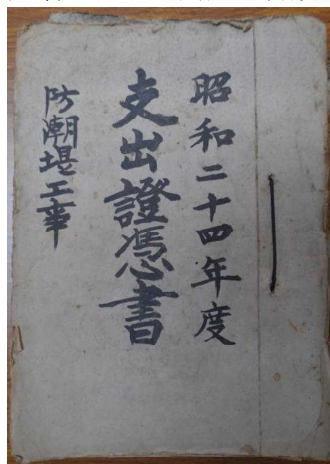 昭和二十四年度
支出證憑書
防潮堤工事